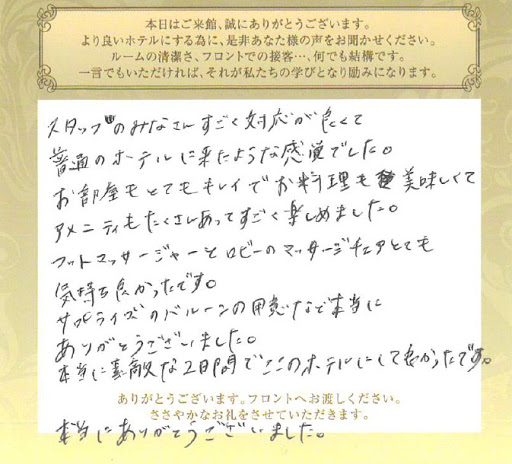 本日はご来館、誠にありがとうございます。
より良いホテルにする為に、是非あなた様の声をお聞かせください。
ルームの清潔さ、フロントでの接客…、何でも結構です。
一言でもいただければ、それが私たちの学びとなり励みになります。
スタッフのみなさんすごく対応が良くて
普通のホテルに来たような感覚でした。
お部屋もとてもキレイでお料理も美味しくて
アメニティもたくさんあってすごく楽しめました。
フットマッサージャーとロビーのマッサージチェアとても
気持ち良かったです。
サプライズのバルーンの用意など本当に
ありがとうございました。
本当に素敵な2日間でここのホテルにして良かったです。
ありがとうございます。フロントへお渡しください。
ささやかなお礼をさせていただきます。
本当にありがとうございました。